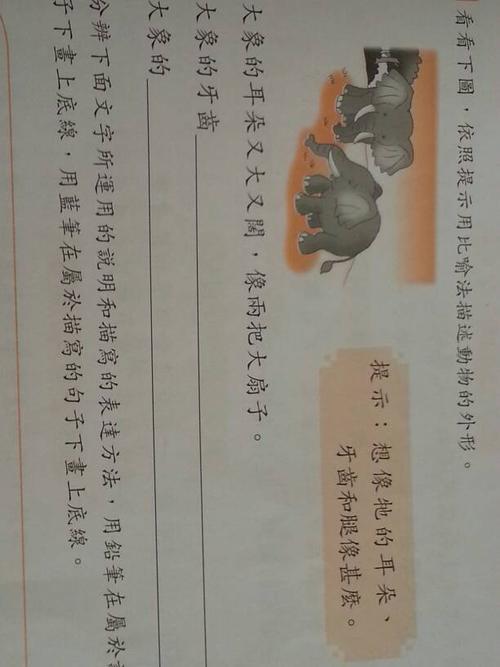 看看下圖，依照提示用比喻法描述動物的外形。
提示：想像牠的耳朵、
牙齒和腿像甚麼。
大象的耳朵又大又闊，像兩把大扇子。
大象的牙齒
大象的
分辨下面文字所運用的說明和描寫的表達方法，用鉛筆在屬於
子下畫上底線，用藍筆在屬於描寫的句子下畫上底線。